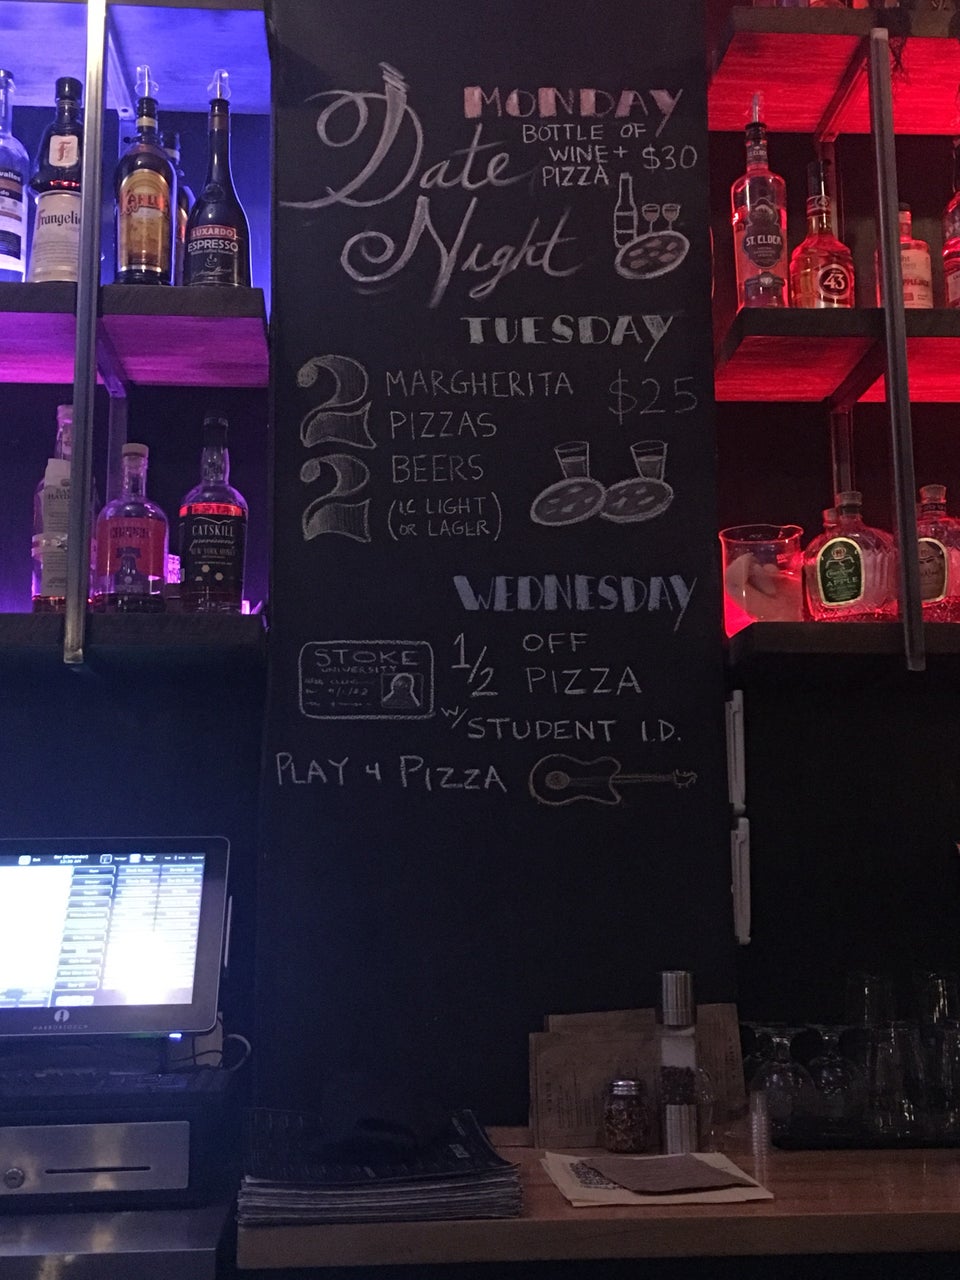 MONDAY
Date
Night
BOTTLE OF
WINE + $30
PIZZA
TUESDAY
2 MARGHERITA $25
PIZZAS
2 BEERS
(I.C LIGHT
OR LAGER)
WEDNESDAY
1/2 OFF
PIZZA
W/ STUDENT I.D.
STOKE
UNIVERSITY
PLAY 4 PIZZA
LUXARDO
ESPRESSO
CATSKILL
provisions
NEW YORK HONEY
ST. ELDER
43
APPLE
HARBORTOUCH